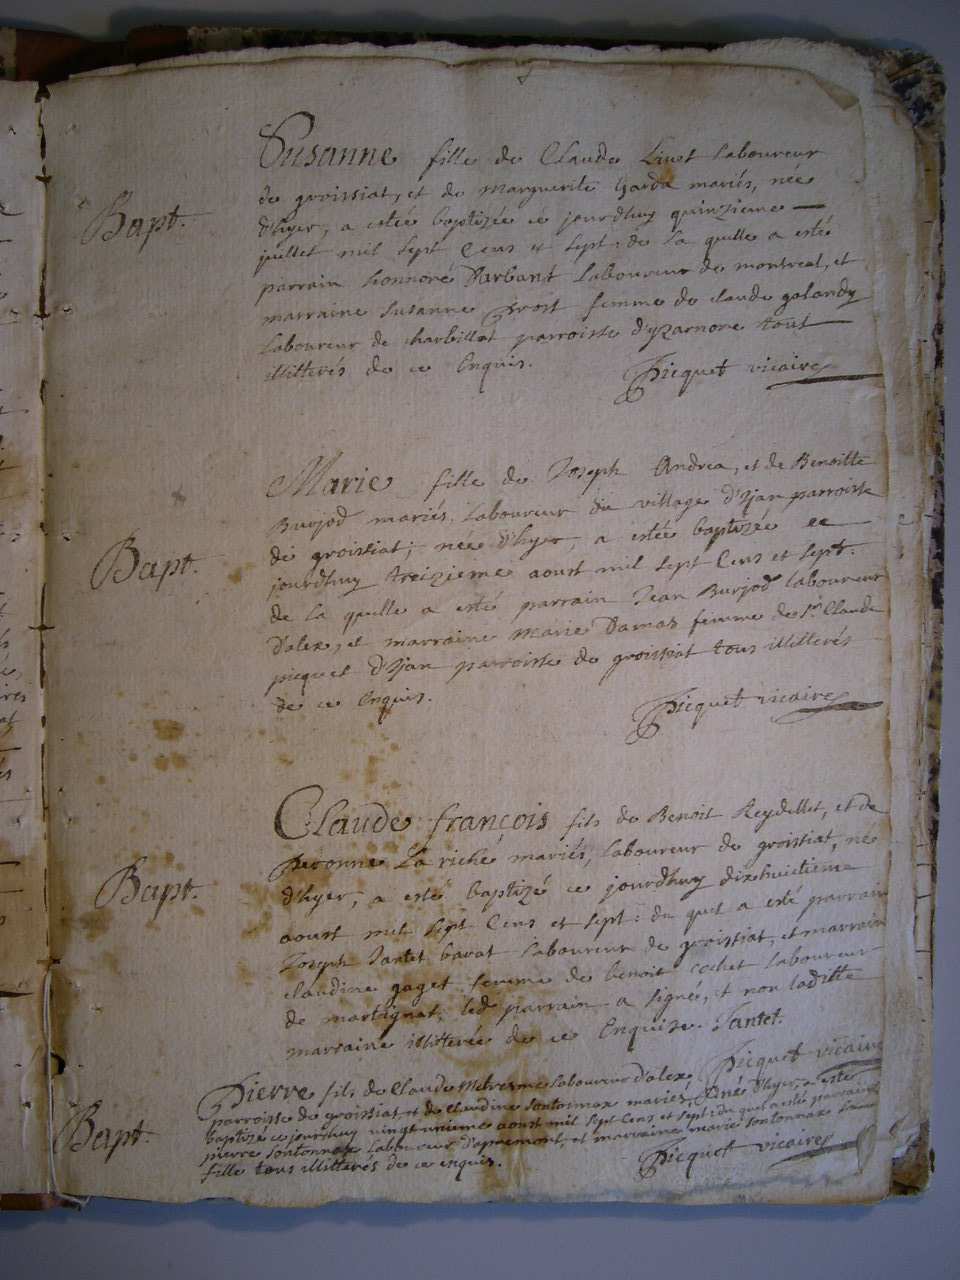 Bapt.
Susanne fille de Claude Livet Laboureur
de groissiat, et de Marguerite Garda mariés, née
d'hyer, a estée baptizée ce jourdhuy quinzieme
juillet mil sept Cens et sept, de la quelle a esté
parrain honnoré Darbant Laboureur de montreal, et
marraine susanne Prost femme de claude galandy
Laboureur de charbillat parroisse d'yzarnore tous
illitterés de ce Enquis. Picquet vicaire
Bapt.
Marie fille de Joseph Andrea, et de Benoitte
Burjod mariés, Laboureur du village d'Ijan parroisse
de groissiat; née d'hyer, a estée baptizée ce
jourdhuy treizieme aoust mil sept Cens et sept.
de la quelle a esté parrain Jean Burjod laboureur
Dalex, et marraine Marie Damas femme de Sr. Claude
picquet d'Ijan parroisse de groissiat tous illitterés
de ce Enquis.
Picquet vicaire
Bapt.
Claude françois fils de Benoit Reydellet, et de
Peronne La riche mariés, laboureur de groissiat, né
d'hyer, a esté baptizé ce jourdhuy dixhuitieme
aoust mil sept Cens et sept: du quel a esté parrain
Joseph Tantet bavat Laboureur de groissiat, et marraine
claudine gaget femme de benoit cochet Laboureur
de martignat, led parrain a signé, et non laditte
marraine illitterée de ce Enquise. Tantet.
Picquet vicaire
Bapt.
Pierre fils de Claude Laboureur d'alex,
parroisse de groissiat, et de Claudine Sontonnax mariés, né d'hyer, a esté
baptizé ce jourdhuy vingt unieme aoust mil sept Cens et sept: du quel a esté parrain
pierre Sontonnax Laboureur D'apremont, et marraine marie Sontonnax
fille tous illitterés de ce enquis. Picquet vicaire